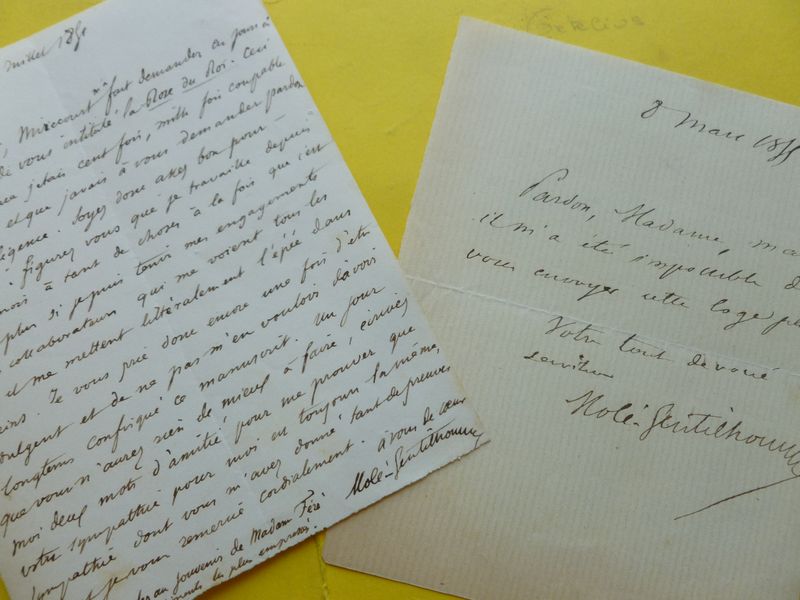 juillet 1851
Mirecourt m'a fait demander
de vous intitulé la Rose du Roi. Ceci
j'étais cent fois, mille fois coupable
et que j'avais à vous demander pardon
négligence. Soyez donc assez bon pour
figurez vous que je travaille depuis
mois à tant de choses à la fois que c'est
plus si je puis tenir mes engagements
collaborateurs qui me voient tous les
et me mettent littéralement l'épée dans
reins. Je vous prie donc encore une fois d'être
indulgent et de ne pas m'en vouloir d'avoir
longtems confisqué ce manuscrit. Un jour
que vous n'aurez rien de mieux à faire, écrivez
moi deux mots d'amitié pour me prouver que
votre sympathie pour moi est toujours la même,
sympathie dont vous m'avez donné tant de preuves
je vous remercie cordialement.
à vous de cœur
Molé-Gentilhomme
au souvenir de Madame Féré
les plus empressés.
Pardon, Madame, ma
il m'a été impossible d
vous envoyer cette loge pl
Votre tout dévoué
serviteur
Molé-Gentilhomme